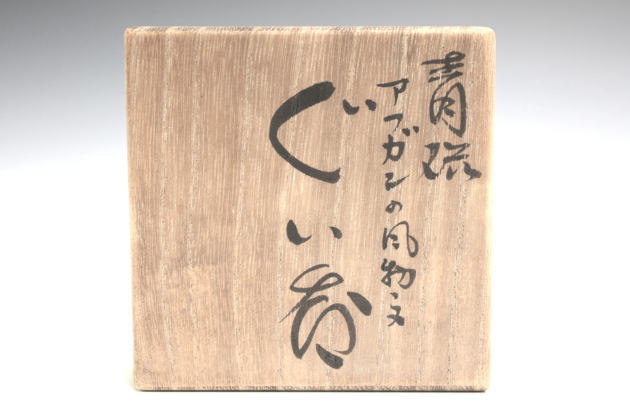 青琉
アフガンの風物文
ぐい呑